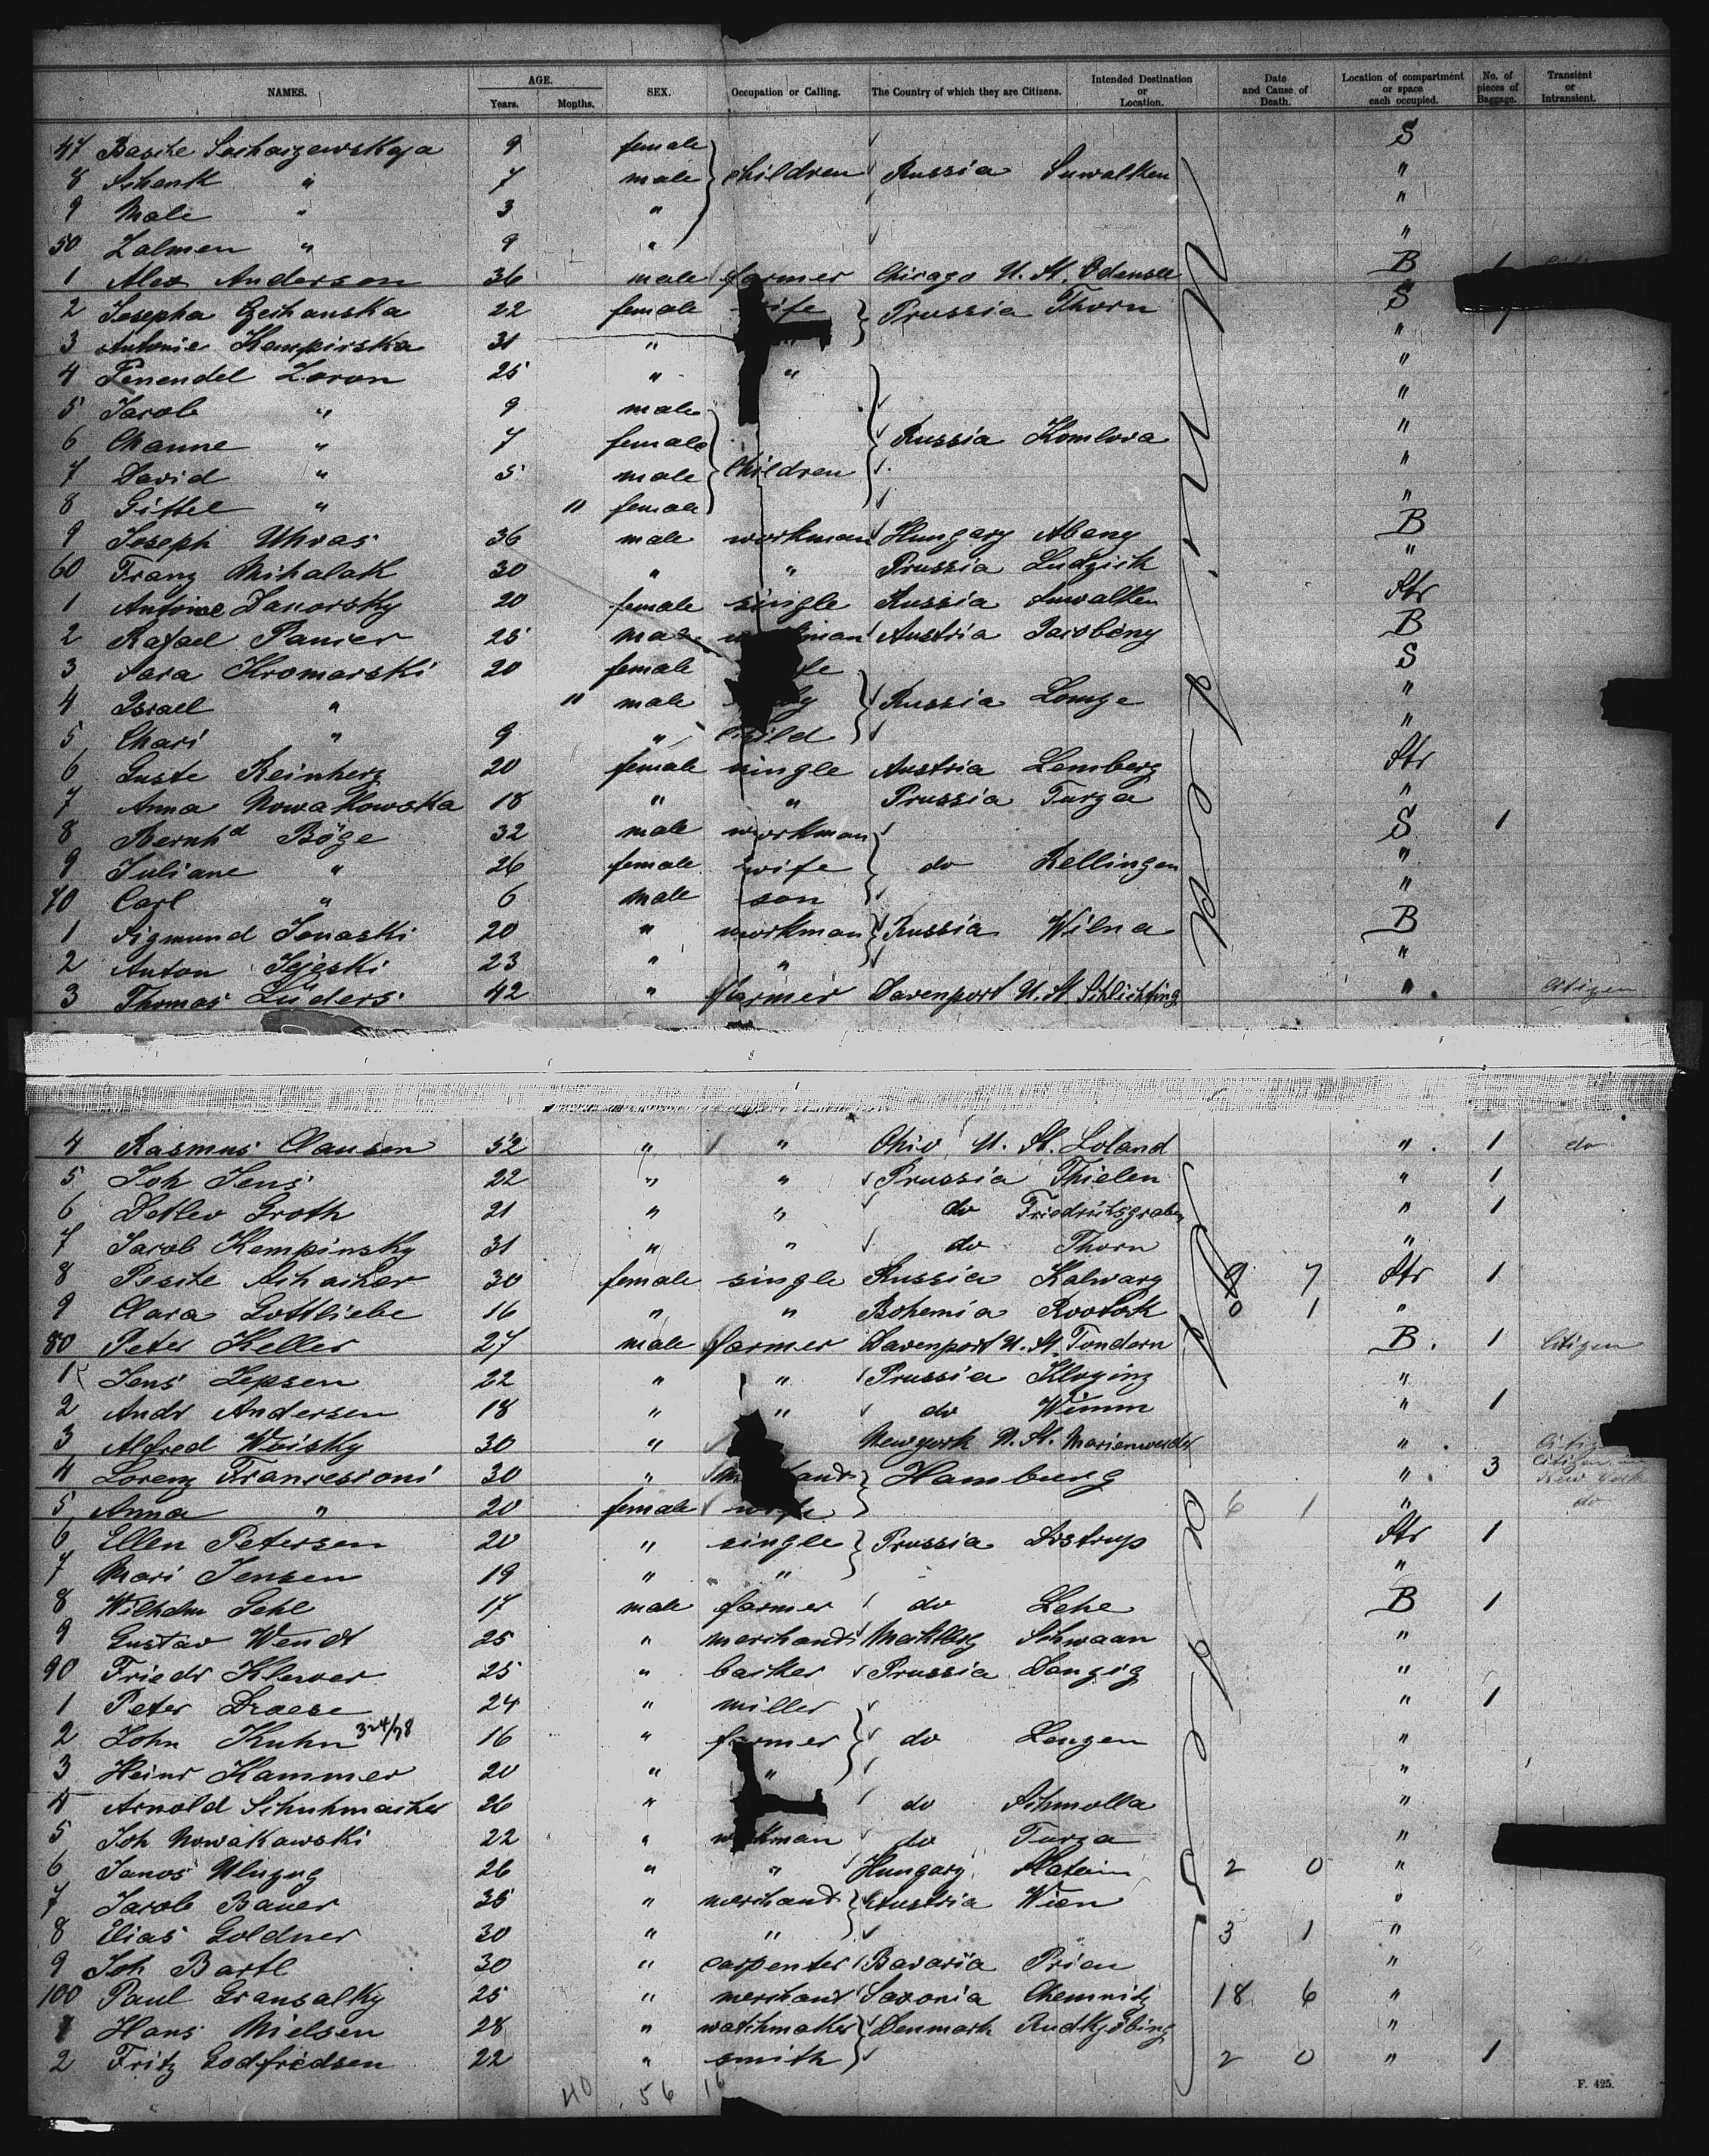 NAMES. AGE. Years. Months. SEX. Occupation or Calling. The Country of which they are Citizens. Intended Destination or Location. Date and Cause of Death. Location of compartment or space each occupied. No. of pieces of Baggage. Transient or Intransient.
47 Basche 9 female S
8 Schenk " 7 male children Russia Suwalken "
9 Male " 3 " "
50 Zalmen " 9 " "
1 Alex Anderson 36 male farmer Chicago U. St. Odensee B 1
2 Josepha 22 female wife Prussia Thorn S
3 Antonie Kempirska 31 " " 1
4 Penendel Loron 25 " " "
5 Jacob " 9 male "
6 Channe " 7 female Russia Komlova "
7 David " 5 male Children "
8 Gittel " 11 female "
9 Joseph Uhvas 36 male workman Hungary Abany B
60 Franz Mihalak 30 " " Prussia Ludzick "
1 Antoine Janorsky 20 female single Russia Suwalken Str
2 Rafael Pamer 25 male Austria B
3 Sara Kromarski 20 female S
4 Israel " 11 male Russia Lomge "
5 Chari " 9 " child "
6 Guste Reinherz 20 female single Austria Lemberg Str
7 Anna Nowakowska 18 " " Prussia Turza "
8 Bernhd Böge 32 male workman S 1
9 Juliane " 26 female wife do Rellingen "
70 Carl " 6 male son "
1 Sigmund Jonaski 20 " workman Russia Wilna B
2 Anton Jejeski 23 " " "
3 Thomas Lüders 42 " farmer Davenport U. St. Schlichting " Citizen
4 Rasmus Clausen 52 " " Ohio U. St. Loland " 1 do
5 Joh Jens 22 " " Prussia Thielen " 1
6 Detlev Groth 21 " " do Friedrichsgraben " 1
7 Jacob Kempinsky 31 " " do Thorn "
8 Pesche Schacher 30 female single Russia Kalwary 9 7 Str 1
9 Clara Gottliebe 16 " " Bohemia 0 1 "
80 Peter Keller 27 male farmer Davenport U. St. Tondern B. 1 Citizen
1 Jens Jepsen 22 " " Prussia Kloging "
2 Andr Andersen 18 " " do Wimm " 1
3 Alfred Woisky 30 " Newyork U. St. Marienwerder "
4 Lorenz Francesioni 30 " Hamburg " 3 Citizen New York
5 Anna " 20 female wife 6 1 " do
6 Ellen Petersen 20 " single Prussia Arstrup Str 1
7 Mari Jensen 19 " " "
8 Wilhelm Sehl 17 male farmer do Lehe B 1
9 Gustav Wendt 25 " merchant Mecklbg Schwaan "
90 Friedr Klewer 25 " backer Prussia Danzig "
1 Peter Draese 24 " miller " 1
2 John Kuhn 324/38 16 " farmer do Lengen "
3 Heinr Kammer 20 " " "
4 Arnold Schuhmacher 26 " do Schmolla "
5 Joh Nowakawski 22 " workman do Turza "
6 Janos 26 " " Hungary 2 0 "
7 Jacob Bauer 35 " merchant Austria Wien "
8 Elias Goldner 30 " " 3 1 "
9 Joh Bartl 30 " carpenter Bavaria Prien "
100 Paul Gransalky 25 " merchant Saxonia Chemnitz 18 6 "
1 Hans Nielsen 28 " watchmaker Denmark Rudkjöbing "
2 Fritz Godfredsen 22 " smith 2 0 " 1
40 56 16
F. 425.